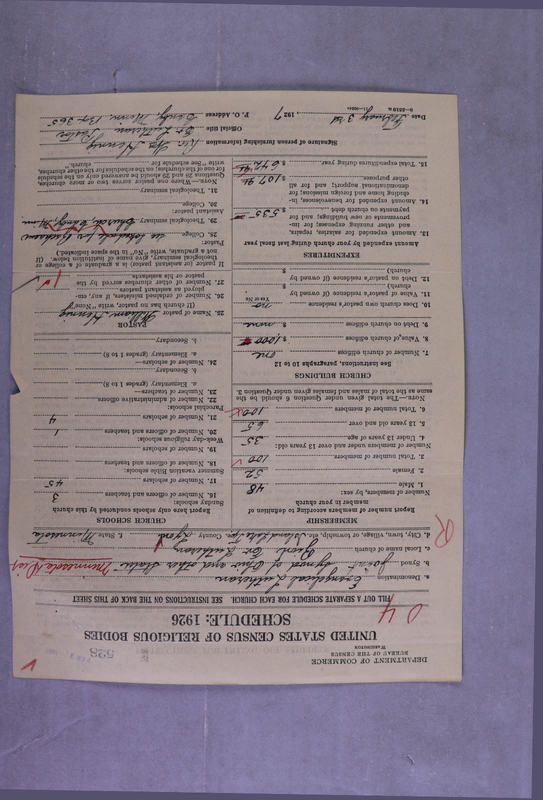 DEPARTMENT OF COMMERCE
BUREAU OF THE CENSUS
WASHINGTON
528
UNITED STATES CENSUS OF RELIGIOUS BODIES
SCHEDULE: 1926
FILL OUT A SEPARATE SCHEDULE FOR EACH CHURCH. SEE INSTRUCTIONS ON THE BACK OF THIS SHEET
a. Denomination Evangelical Lutheran
b. Synod Joint Synod of Ohio and other States Minnesota Dis.
c. Local name of church Ev. Lutheran
d. City, town, village, or township, etc. Island Lake Twp. e. County Lyon f. State Minnesota
MEMBERSHIP
Report number of members according to definition of member in your church
Number of members, by sex:
1. Male 48
2. Female 52
3. Total number of members 100
Number of members under and over 13 years old:
4. Under 13 years of age 35
5. 13 years old and over 65
6. Total number of members 100
Note.—The total given under Question 6 should be the same as the total of males and females given under Question 3.
CHURCH BUILDINGS
See instructions, paragraphs 10 to 12
7. Number of church edifices one
8. Value of church edifices $ 1,000
9. Debt on church edifices $ none
10. Does church own pastor's residence no
Yes or No
11. Value of pastor's residence (if owned by church) $
12. Debt on pastor's residence (if owned by church) $
EXPENDITURES
Amount expended by your church during last fiscal year
13. Amount expended for salaries, repairs, and other running expenses; for improvements or new buildings; and for payments on church debt $ 535
14. Amount expended for benevolences, including home and foreign missions; for denominational support; and for all other purposes $ 107
15. Total expenditures during year $ 642
CHURCH SCHOOLS
Report here only schools conducted by this church
Sunday schools:
16. Number of officers and teachers 3
17. Number of scholars 45
Summer vacation Bible schools:
18. Number of officers and teachers
19. Number of scholars
Week-day religious schools:
20. Number of officers and teachers 1
21. Number of scholars 4
Parochial schools:
22. Number of administrative officers
23. Number of teachers—
a. Elementary (grades 1 to 8)
b. Secondary
24. Number of scholars—
a. Elementary (grades 1 to 8)
b. Secondary
PASTOR
25. Name of pastor William Hennig
(If church has no pastor, write "None")
26. Number of ordained ministers, if any, employed as assistants to pastor
27. Number of other churches served by the pastor or his assistants 1
If pastor (or assistant) is a graduate of a college or theological seminary, give name of institution below. (If not a graduate, write "No" in the space indicated.)
Pastor:
28. College
29. Theological seminary
Assistant pastor:
30. College
31. Theological seminary
Note.—Where one pastor serves two or more churches, Questions 28 and 29 should be answered only on the schedule for one of the churches; on the schedules for the other churches, write "See schedule for church."
Signature of person furnishing information Rev. Wm Hennig
Official title Ev. Lutheran Pastor
P. O. Address Box 365
Date February 3rd, 1927